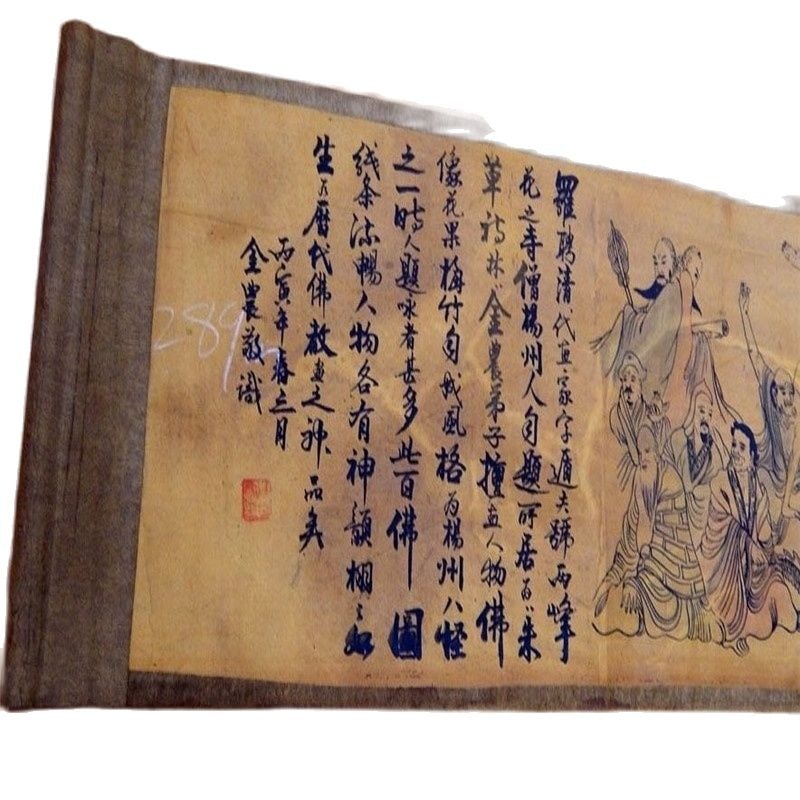 羅聘清代画家字遁夫號兩峰
花之寺僧楊州人自題所居曰朱
草詩林金農弟子擅画人物佛
像花果梅竹自成風格为楊州八怪
之一時人題咏者甚多此百佛圖
线条流暢人物各有神韻栩〻如
生乃歷代佛教画之神品矣
丙寅年春三月
金農敬識
289